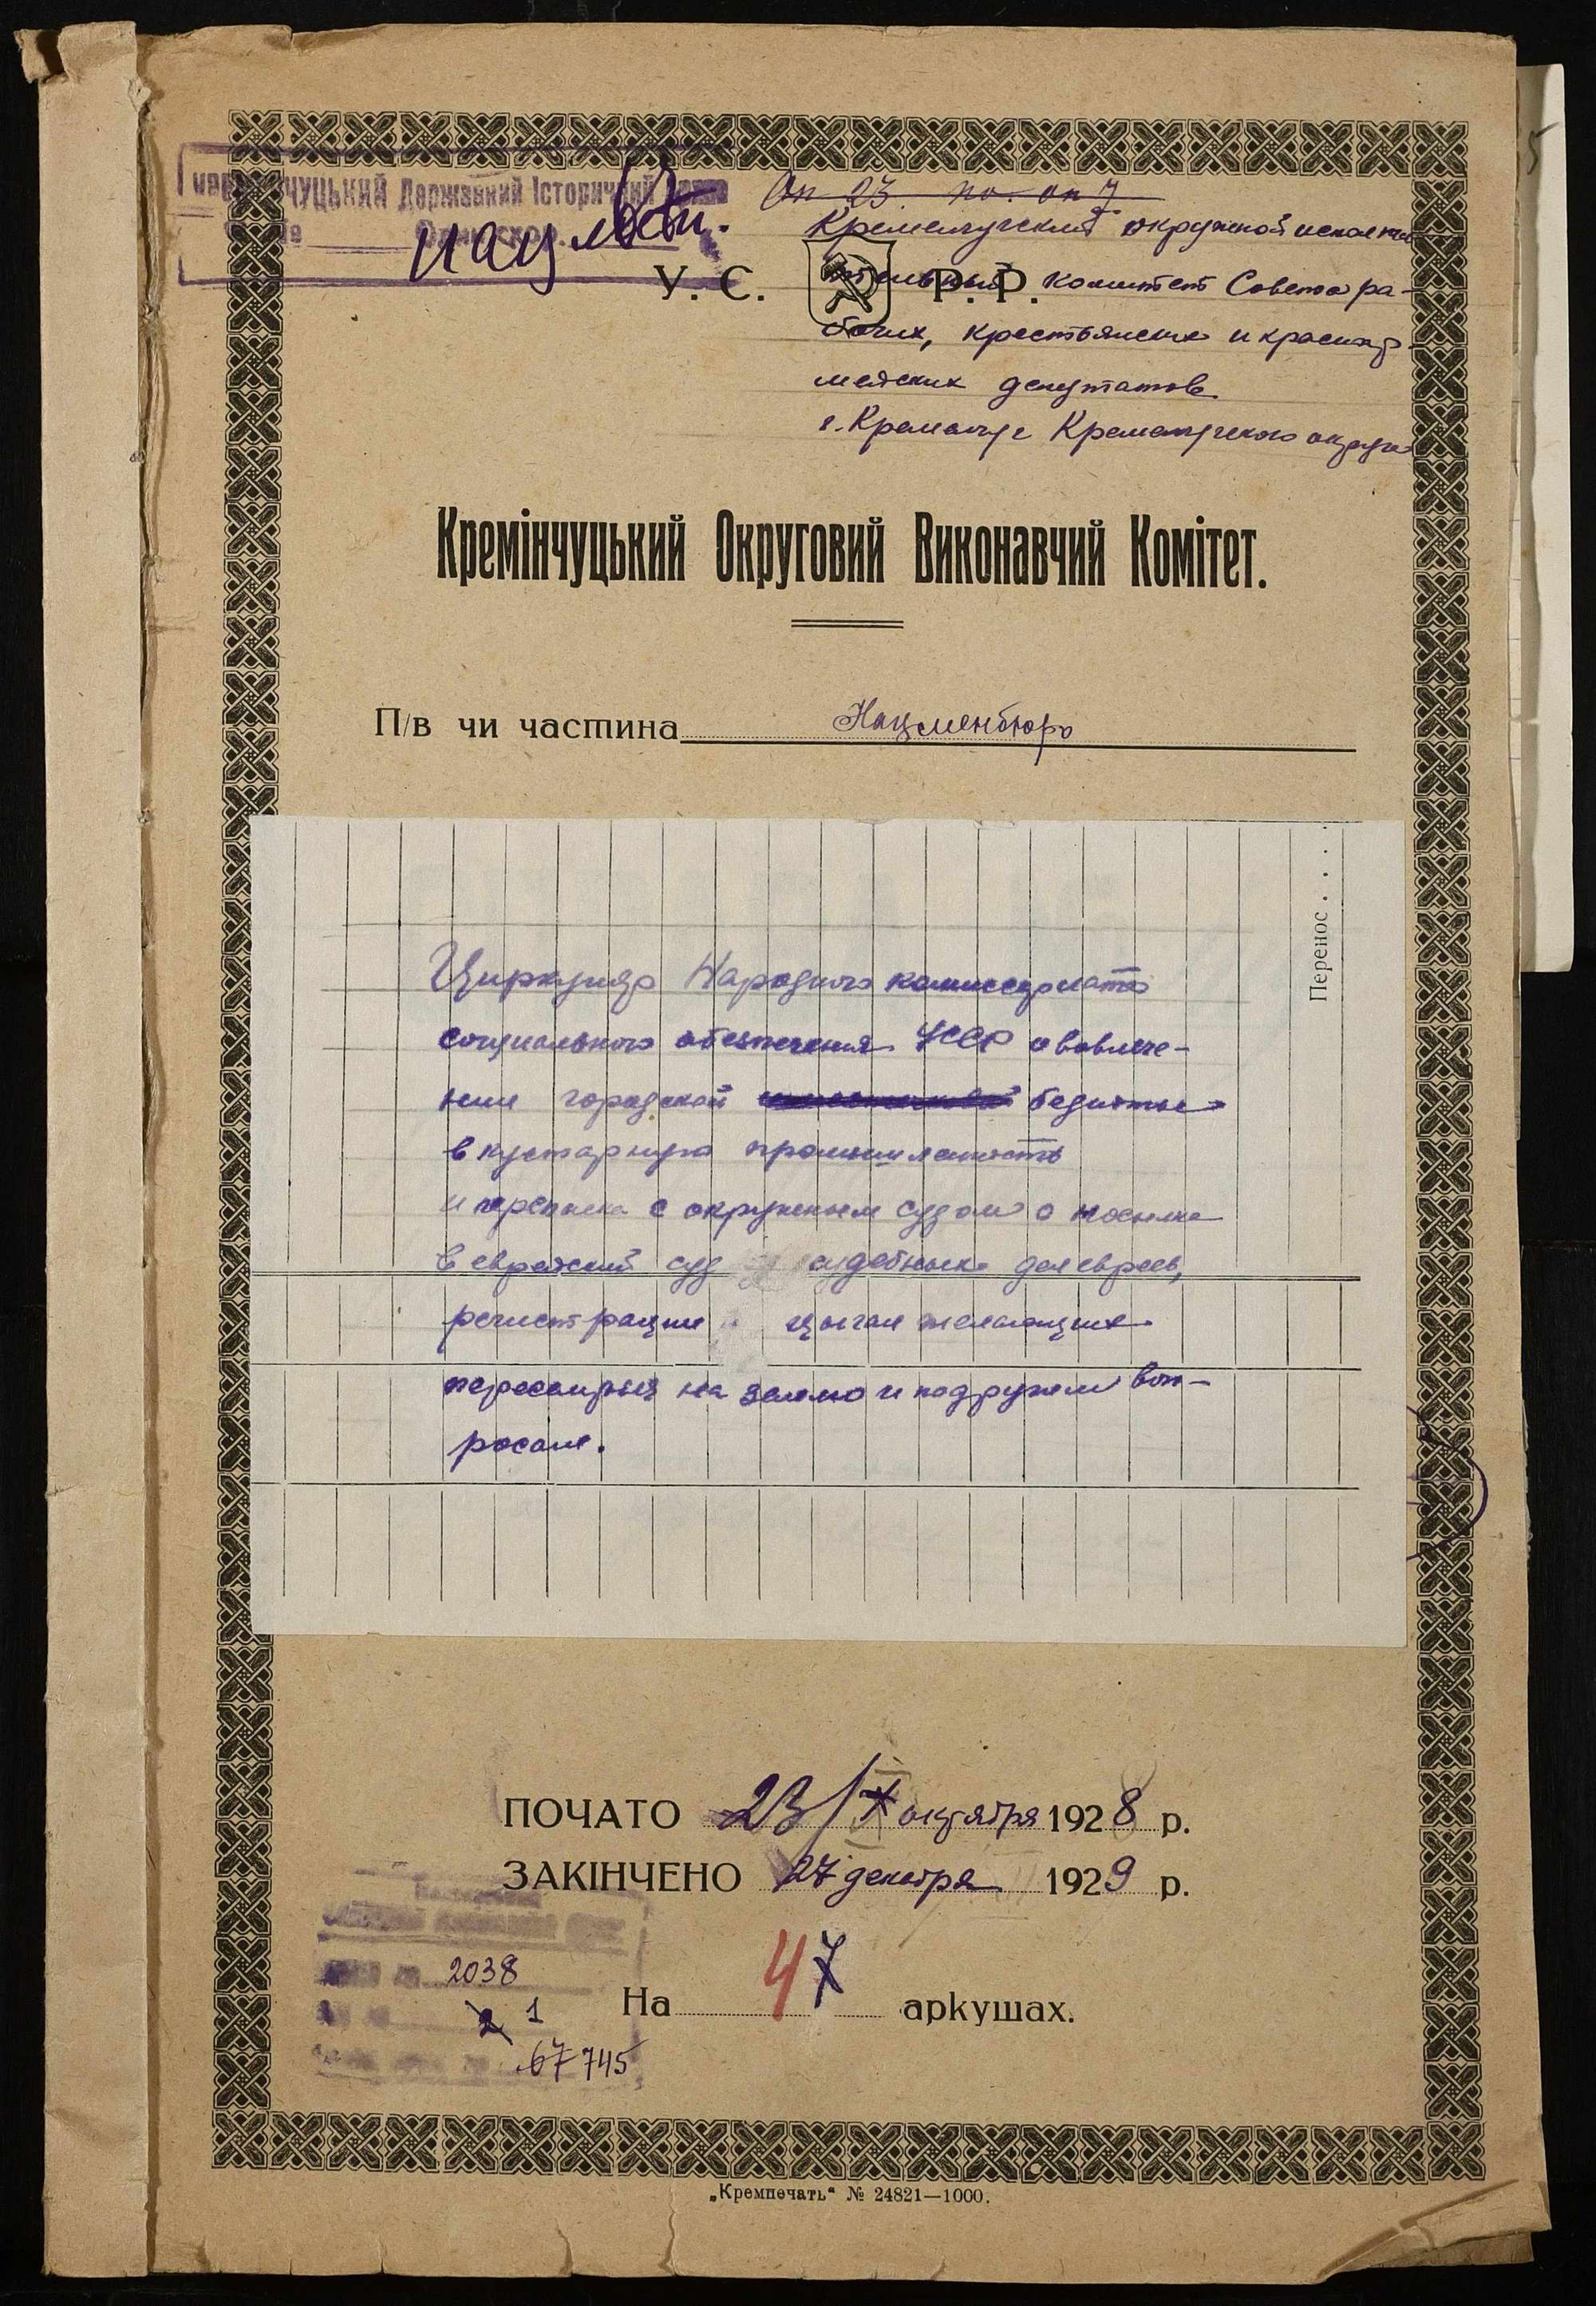 Державний Історичний
Оп 23 по. оп 7
Кременчугский окружной исполни
тельный комитет Совета ра-
У. С. Р. Р.
бочих, крестьянских и красноар-
мейских депутатов
г. Кременчуг Кременчугского округа
Кремінчуцький Округовий Виконавчий Комітет.
П/в чи частина Нацменбюро
Перенос . . . .
Циркуляр Народного комиссариата
социального обеспечения УССР о вовлече-
нии городской бедноты
в кустарную промышленность
и переписка с окружным судом о посылке
в еврейский суд судебных дел евреев,
регистрации цыган желающих
на землю и по другим воп-
росам.
ПОЧАТО 23/X октября 1928 р.
ЗАКІНЧЕНО 27 декабря 1929 р.
2038
На 47 аркушах.
2 1
67 745
„Кремпечать“ № 24821—1000.